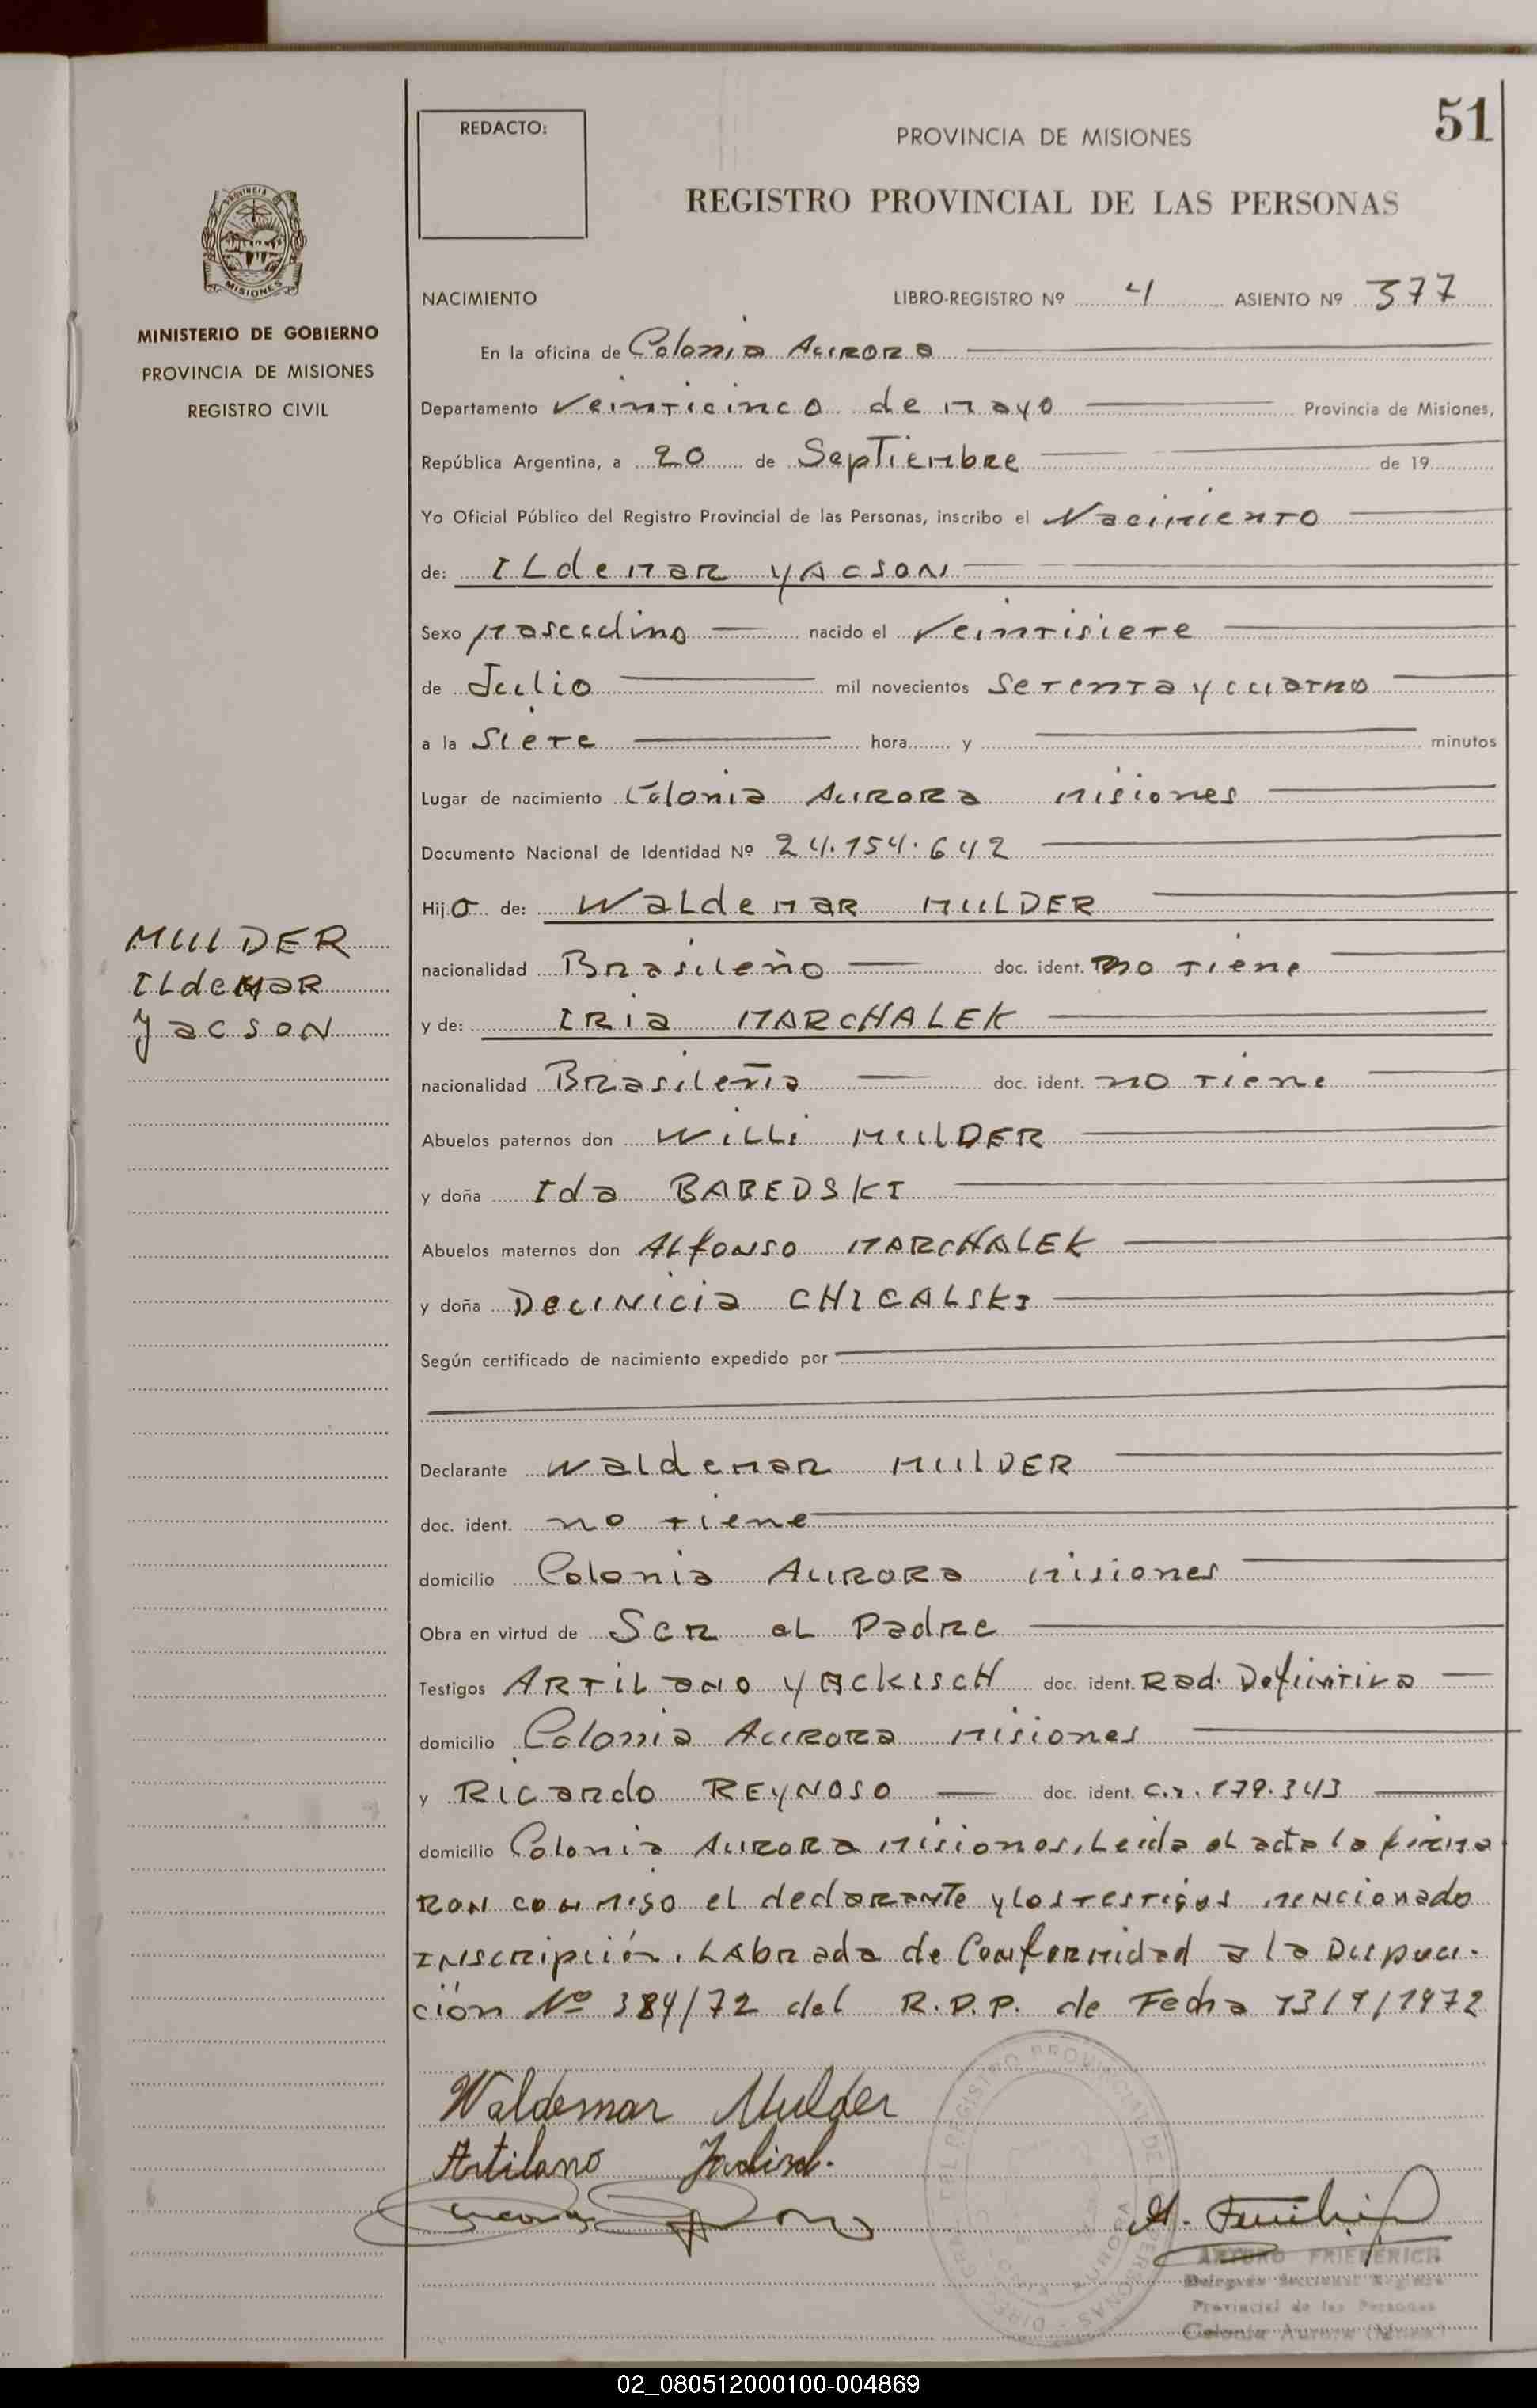 51
REDACTO:
PROVINCIA DE MISIONES
REGISTRO PROVINCIAL DE LAS PERSONAS
PROVINCIA
MISIONES
MINISTERIO DE GOBIERNO
PROVINCIA DE MISIONES
REGISTRO CIVIL
NACIMIENTO LIBRO-REGISTRO Nº 4 ASIENTO Nº 377
En la oficina de Colonia Aurora
Departamento Veinticinco de mayo Provincia de Misiones,
República Argentina, a 20 de Septiembre de 19
Yo Oficial Público del Registro Provincial de las Personas, inscribo el Nacimiento
de: ILdemar YACSON
Sexo masculino nacido el Veintisiete
de Julio mil novecientos Setenta y cuatro
a la Siete hora y minutos
Lugar de nacimiento Colonia Aurora misiones
Documento Nacional de Identidad Nº 24.154.642
Hijo de: WaLdemar MULDER
MULDER
ILdemar
Yacson
nacionalidad Brasileño doc. ident. no tiene
y de: IRia MARCHALEK
nacionalidad Brasileña doc. ident. no tiene
Abuelos paternos don WiLLi MULDER
y doña Ida BABEDSKI
Abuelos maternos don ALfonso MARCHALEK
y doña DecINicia CHICALSKI
Según certificado de nacimiento expedido por
Declarante Waldemar MULDER
doc. ident. no tiene
domicilio Colonia Aurora misiones
Obra en virtud de Ser el Padre
Testigos ARTiLano YACkiscH doc. ident. Rad. Definitiva
domicilio Colonia Aurora misiones
y Ricardo REYNOSO doc. ident. C.I. 179.343
domicilio Colonia Aurora misiones, Leida el acta la firma
RON conmigo el declarante y los testigos mencionado
Inscripción. LAbrada de Conformidad a la Dispuci-
ción Nº 384/72 del R.P.P. de Fecha 13/9/1972
Waldemar Mulder
Artilano
A. Friederich
ARTURO FRIEDERICH
Provincial de las Personas
Colonia Aurora (Mnes.)
02_080512000100-004869